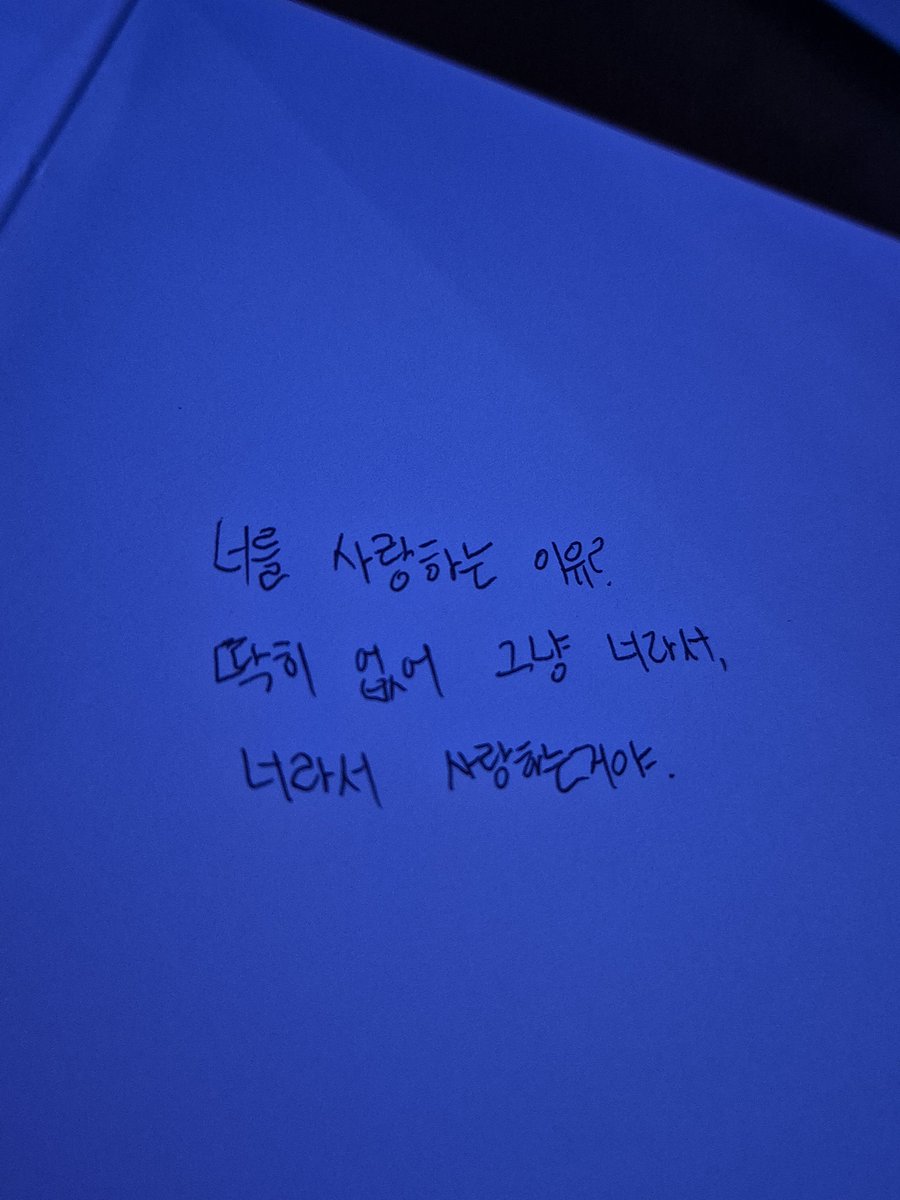 너를 사랑하는 이유?
딱히 없어 그냥 너라서,
너라서 사랑하는거야.